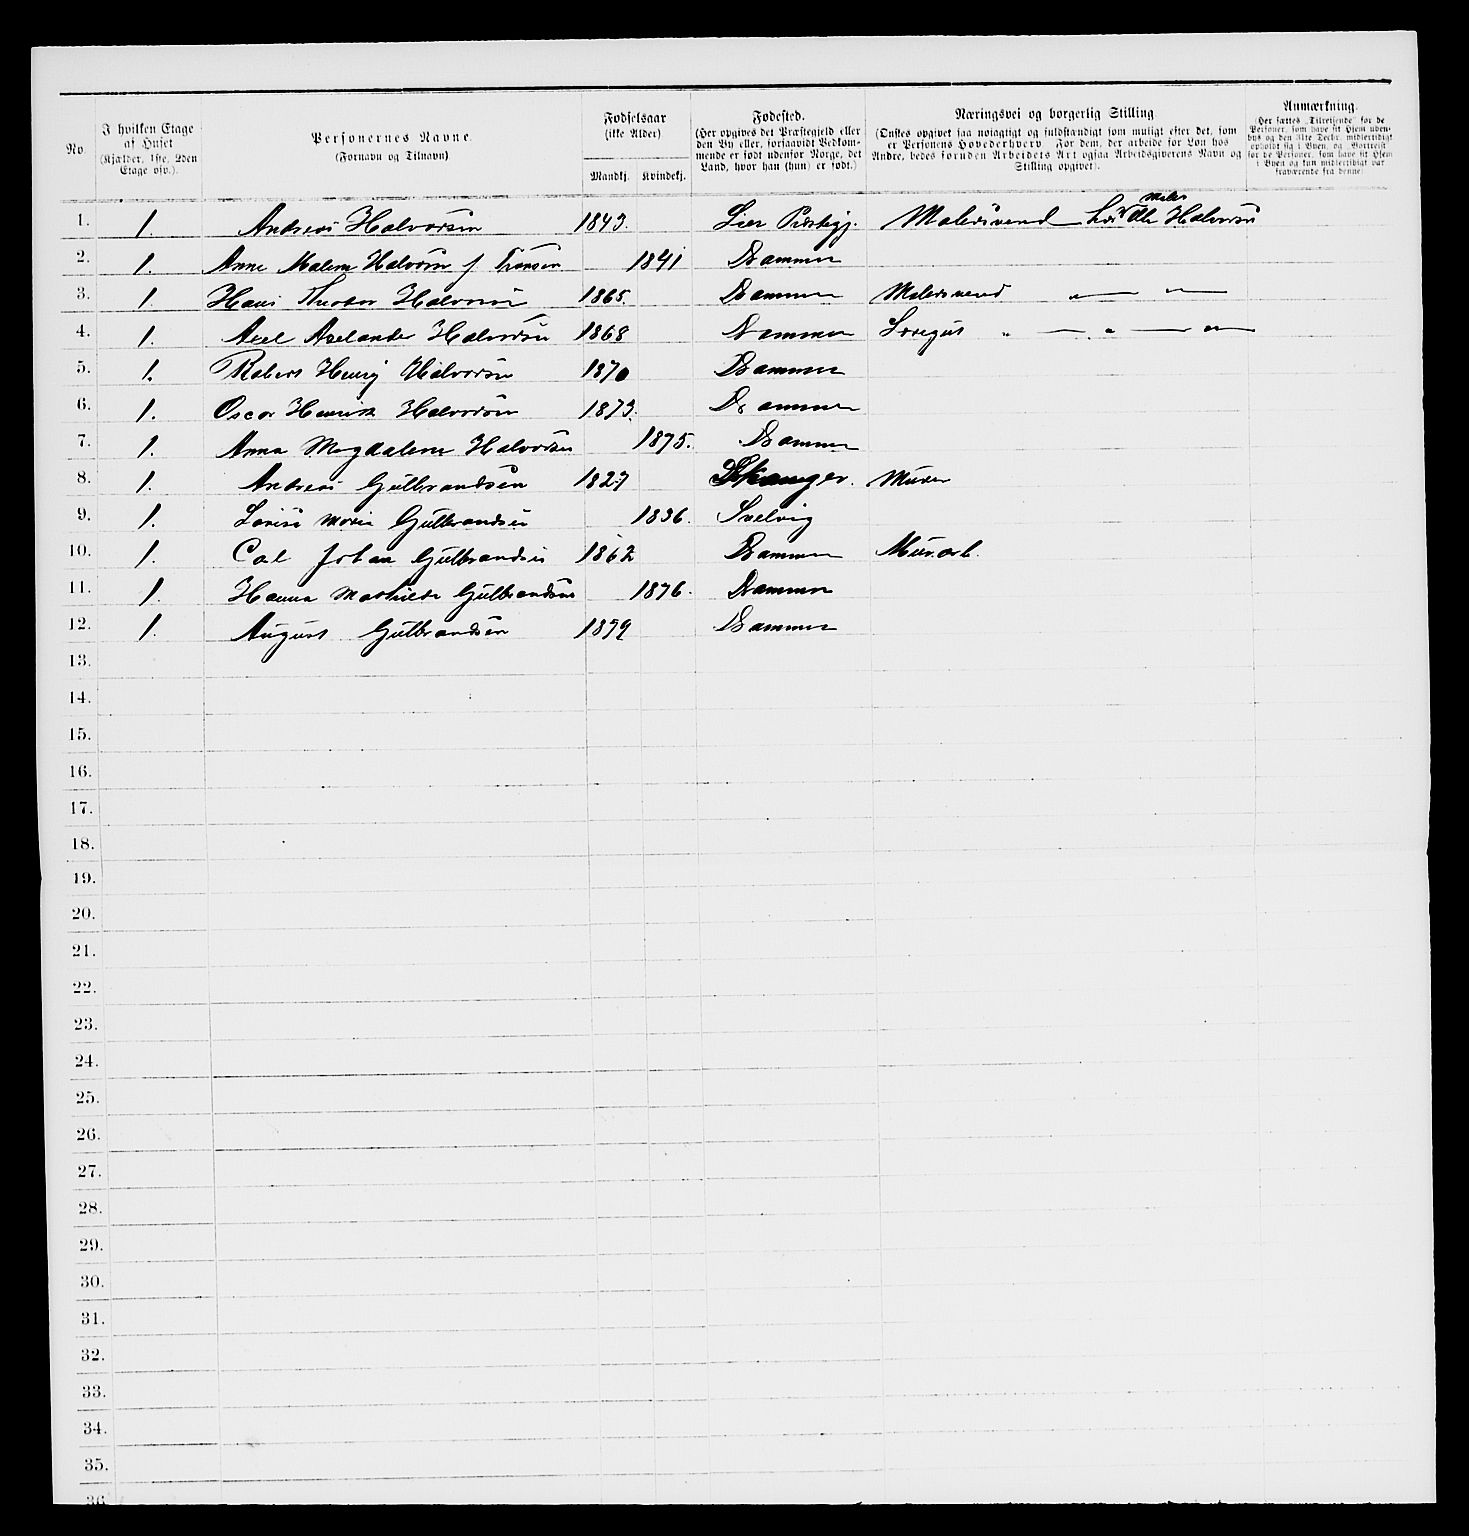 No.
I hvilken Etage af Huset (Kjælder, 1ste, 2den Etage osv.).
Personernes Navne. (Fornavn og Tilnavn)
Fødselsaar (ikke Alder) Mandkj. Kvindekj.
Fødested. (Her opgives det Præstegjeld eller den By eller, forsaavidt Vedkommende er født udenfor Norge, det Land, hvor han (hun) er født.)
Næringsvei og borgerlig Stilling (Ønskes opgivet saa nøiagtigt og fuldstændigt som muligt efter det, som er Personens Hovederhverv For dem, der arbeide for Løn hos Andre, bedes foruden Arbeidets Art ogsaa Arbeidsgiverens Navn og Stilling opgivet).
Anmærkning. (Her sættes „Tilreisende” for de Personer, som have sit Hjem udenbys og den 31te Decbr. midlertidigt opholdt sig i Byen, og „Bortreist” for de Personer, som have sit Hjem i Byen og kun midlertidigt var fraværende fra denne)
1. 1. Andreas Halvorsen 1843. Lier Præstegj. Malersvend hos Maler Halvorsen
2. 1. Anne Malene Halvorsen f. 1841 Drammen
3. 1. Hans Theodor Halvorsen 1865. Drammen Malersvend " "
4. 1. Axel Axelander Halvorsen 1868 Drammen " " "
5. 1. Robert Henry Halvorsen 1870 Drammen
6. 1. Oscar Henrik Halvorsen 1873. Drammen
7. 1. Anna Magdalene Halvorsen 1875. Drammen
8. 1. Andreas Gulbrandsen 1827 Murer
9. 1. Lovise Marie Gulbrandsen 1836. Svelvig
10. 1. Carl Johan Gulbrandsen 1862 Drammen Murarb.
11. 1. Hanna Mathilde Gulbrandsen 1876. Drammen
12. 1. August Gulbrandsen 1879 Drammen
13.
14.
15.
16.
17.
18.
19.
20.
21.
22.
23.
24.
25.
26.
27.
28.
29.
30.
31.
32.
33.
34.
35.
36